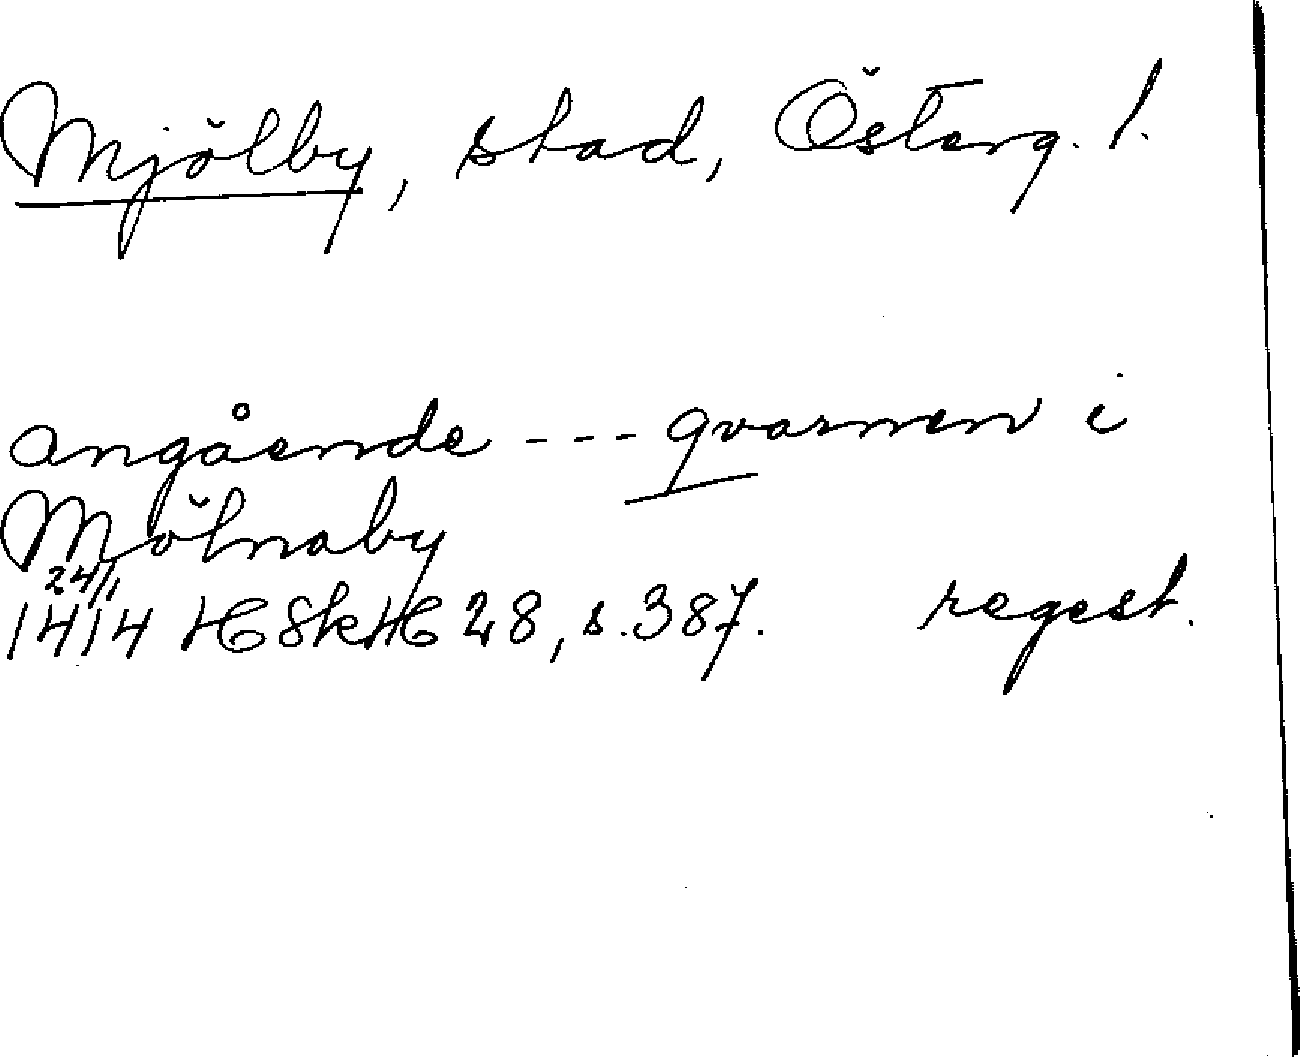 Mjölby, stad, Österg. l.
angående --- qvarnen i
Mjölnaby
24/1
1414 HSkH 28, s. 387. regest.